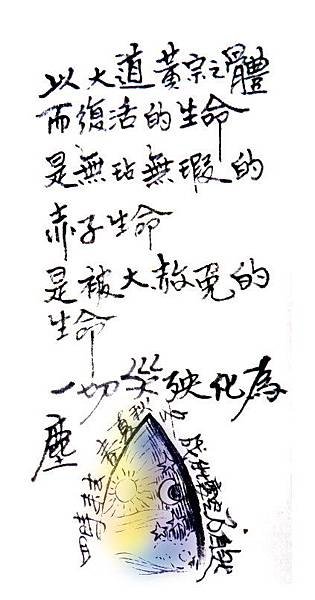 以大道黃宗之體
而復活的生命
是無玷無瑕的
赤子生命
是被大赦免的
生命
一切災殃化為
塵